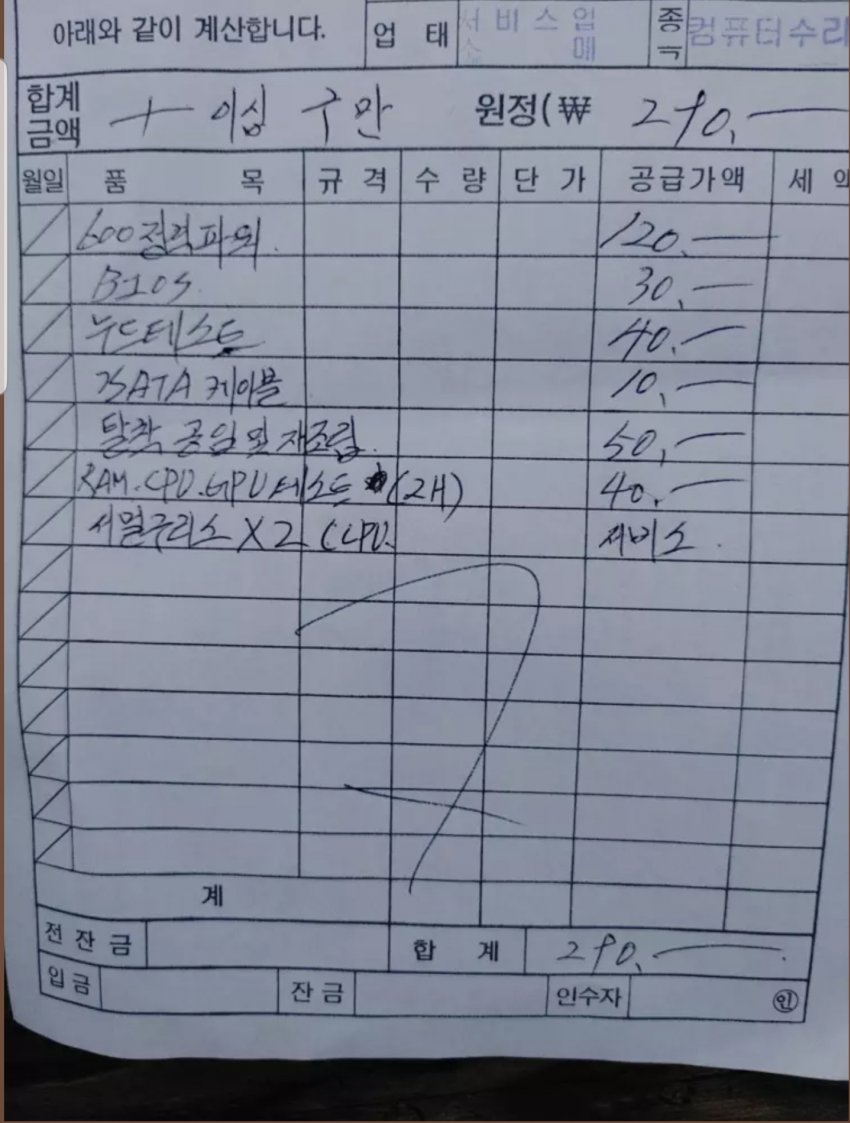 아래와 같이 계산합니다. 업 태 서비스업 소 매 종 컴퓨터수리
합계금액 二十 이십 구만 원정(₩ 290,—
월일 품 목 규 격 수 량 단 가 공급가액 세 액
600 정력파워. 120,—
BIOS. 30,—
누드테스트 40,—
SATA 케이블 10,—
탈착 공임 및 재조립. 50,—
RAM.CPU.GPU 테스트 (2H) 40,—
서멀구리스 X2 (CPU. 서비스.
계
전잔금 합 계 290,—
입금 잔금 인수자 ㊞